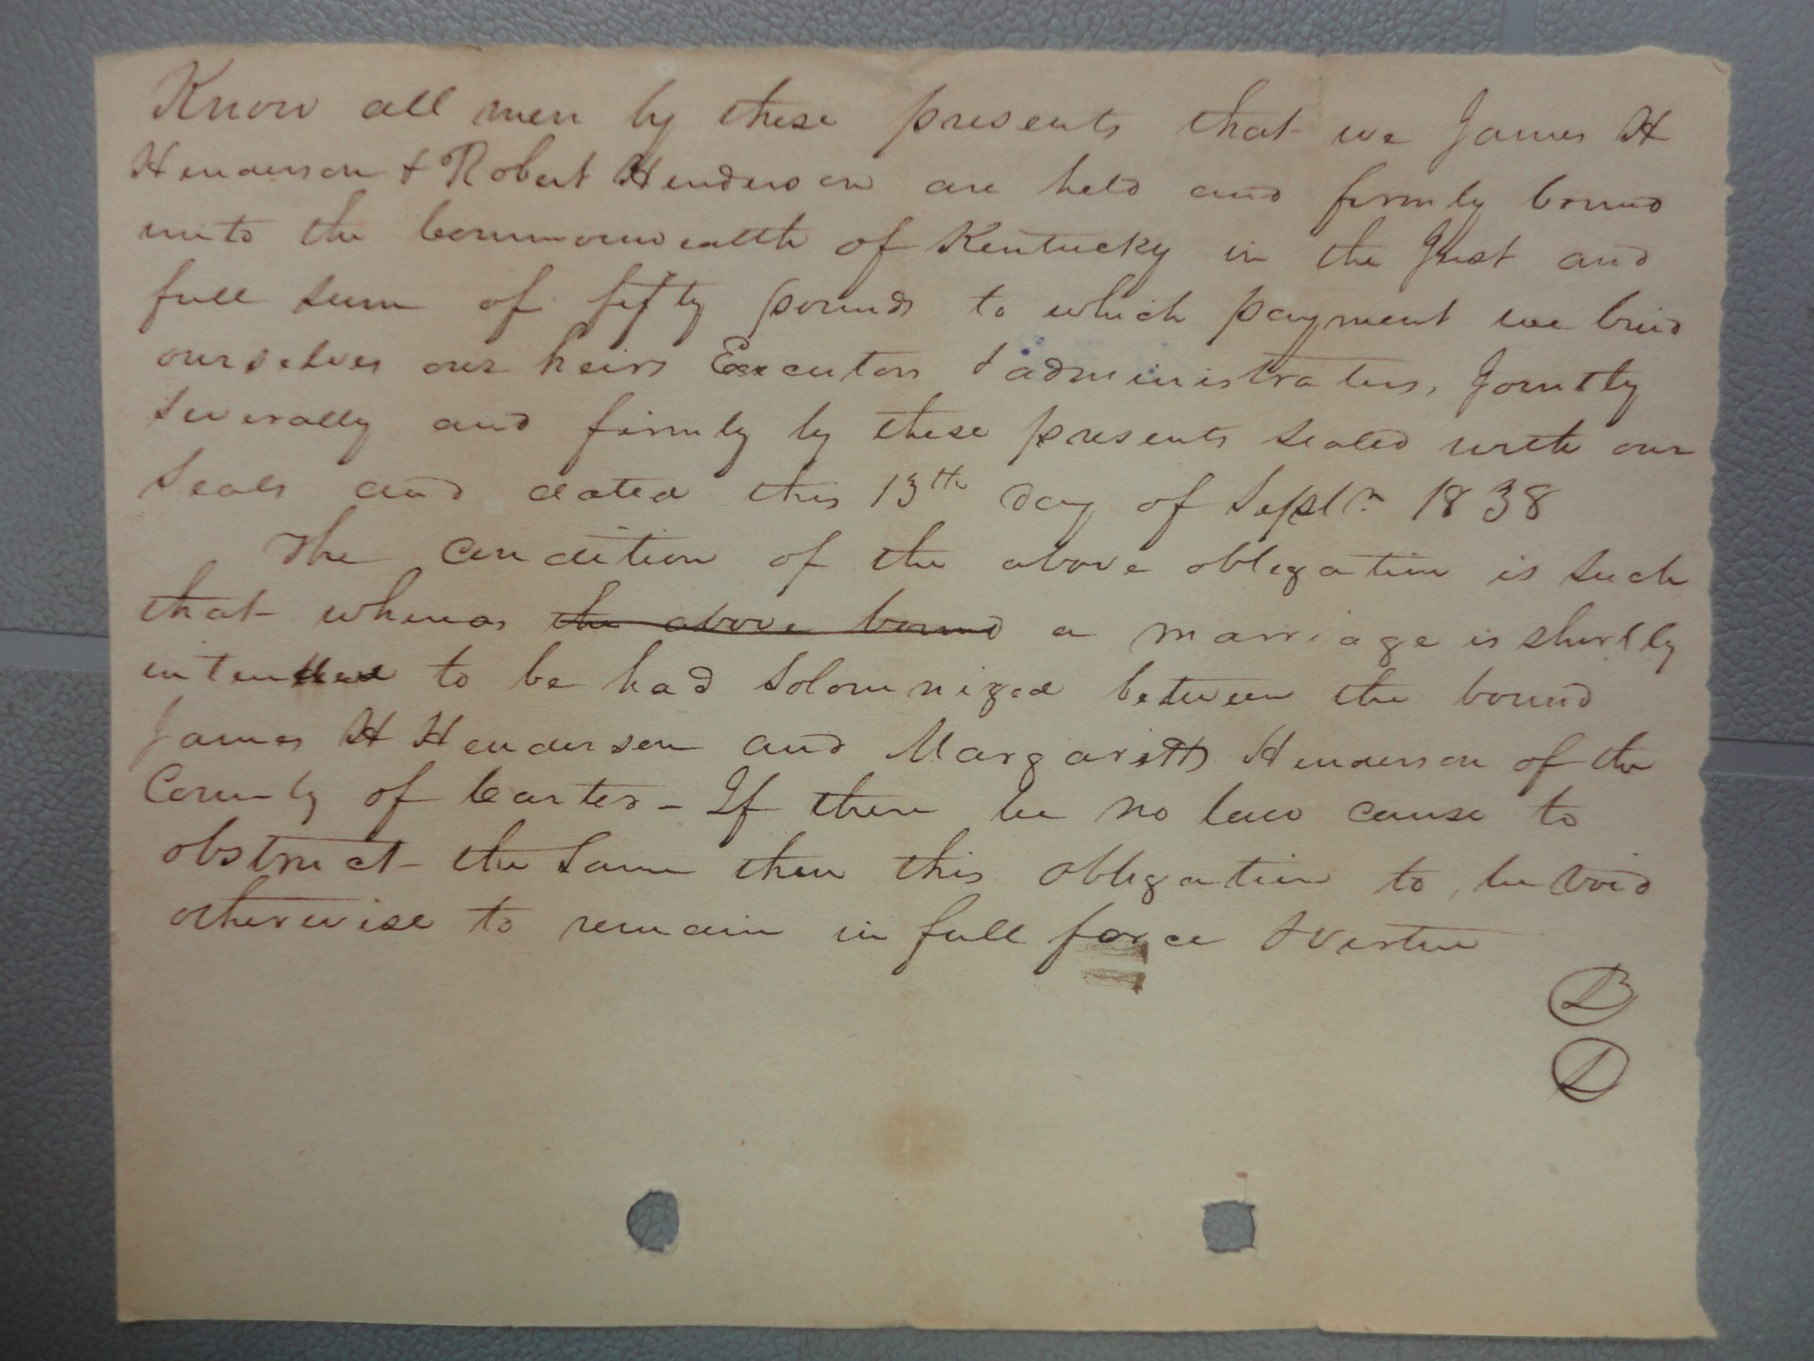 Know all men by these presents that we James H
Henderson & Robert Henderson are held and firmly bound
unto the Commonwealth of Kentucky in the Just and
full sum of fifty pounds to which payment we bind
ourselves our heirs Executors & administrators, Jointly
severally and firmly by these presents sealed with our
Seals and dated this 13th day of Septr 1838
The condition of the above obligation is such
that whereas the above bound a marriage is shortly
intended to be had solomnized between the bound
James H Henderson and Henderson of the
County of Carter - If there be no law cause to
obstruct the Same then this obligation to be void
otherwise to remain in full force & virtue